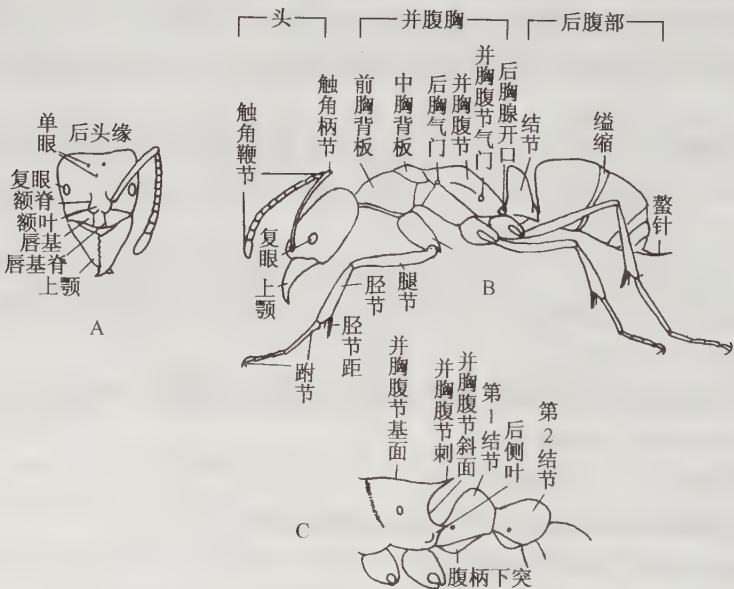 头
并腹胸
后腹部
单眼
后头缘
复眼
额脊
额叶
唇基
唇基脊
上颚
A
触角鞭节
触角柄节
前胸背板
中胸背板
后胸气门
并胸腹节
并胸腹节气门
后胸腺开口
结节
缢缩
螫针
复眼
上颚
胫节
腿节
B
胫节距
跗节
并胸腹节基面
并胸腹节刺
并胸腹节斜面
第1结节
后侧叶
第2结节
C
腹柄下突